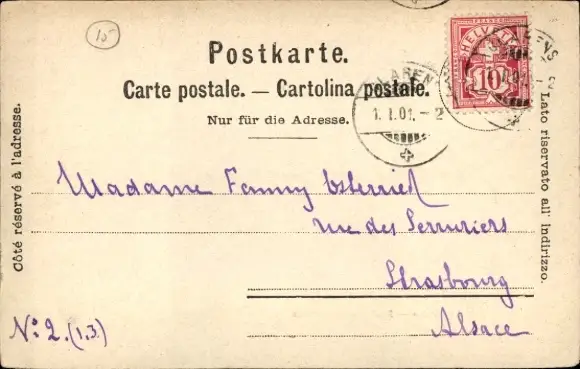 15
HELVETIA
10
Postkarte.
Carte postale. — Cartolina postale.
CLARENS
1. I. 01. - 2
Nur für die Adresse.
Côté réservé à l'adresse.
Lato riservato all' indirizzo.
Madame Fanny Osterried
rue des Serruriers
Strasbourg
Alsace
No: 2. (1,3.)